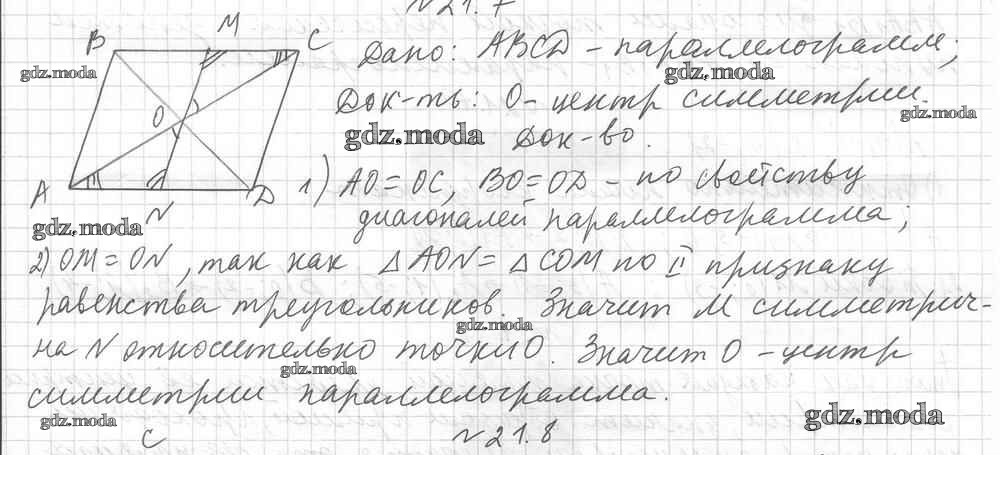 №21.7
B M C
Дано: ABCD – параллелограмм;
gdz.moda
gdz.moda
Док-ть: O – центр симметрии.
gdz.moda
O
gdz.moda
Док-во.
A N D
1) AO = OC, BO = OD – по свойству
gdz.moda
диагоналей параллелограмма;
2) OM = ON, так как △AON = △COM по II признаку
равенства треугольников. Значит M симметрич-
gdz.moda
на N относительно точки O. Значит O – центр
gdz.moda
симметрии параллелограмма.
gdz.moda
gdz.moda
C №21.8